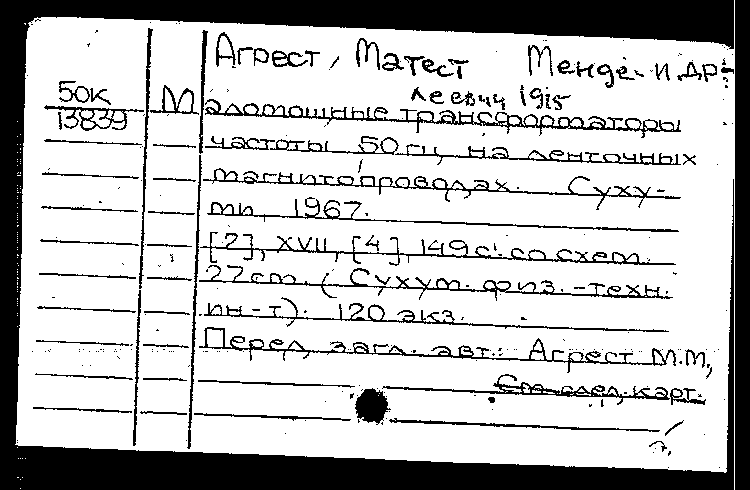 Агрест, Матест Менде- и др.
леевич 1915
50к М алотощные трансформаторы
13839
частоты 50 гц, на ленточных
магнитопроводах. Суху-
ми, 1967.
[2], XVII, [4], 149 с. со схем.
27 см. (Сухум. физ.-техн.
ин-т). 120 экз.
Перед загл. авт.: Агрест М.М.,
См. след. карт.